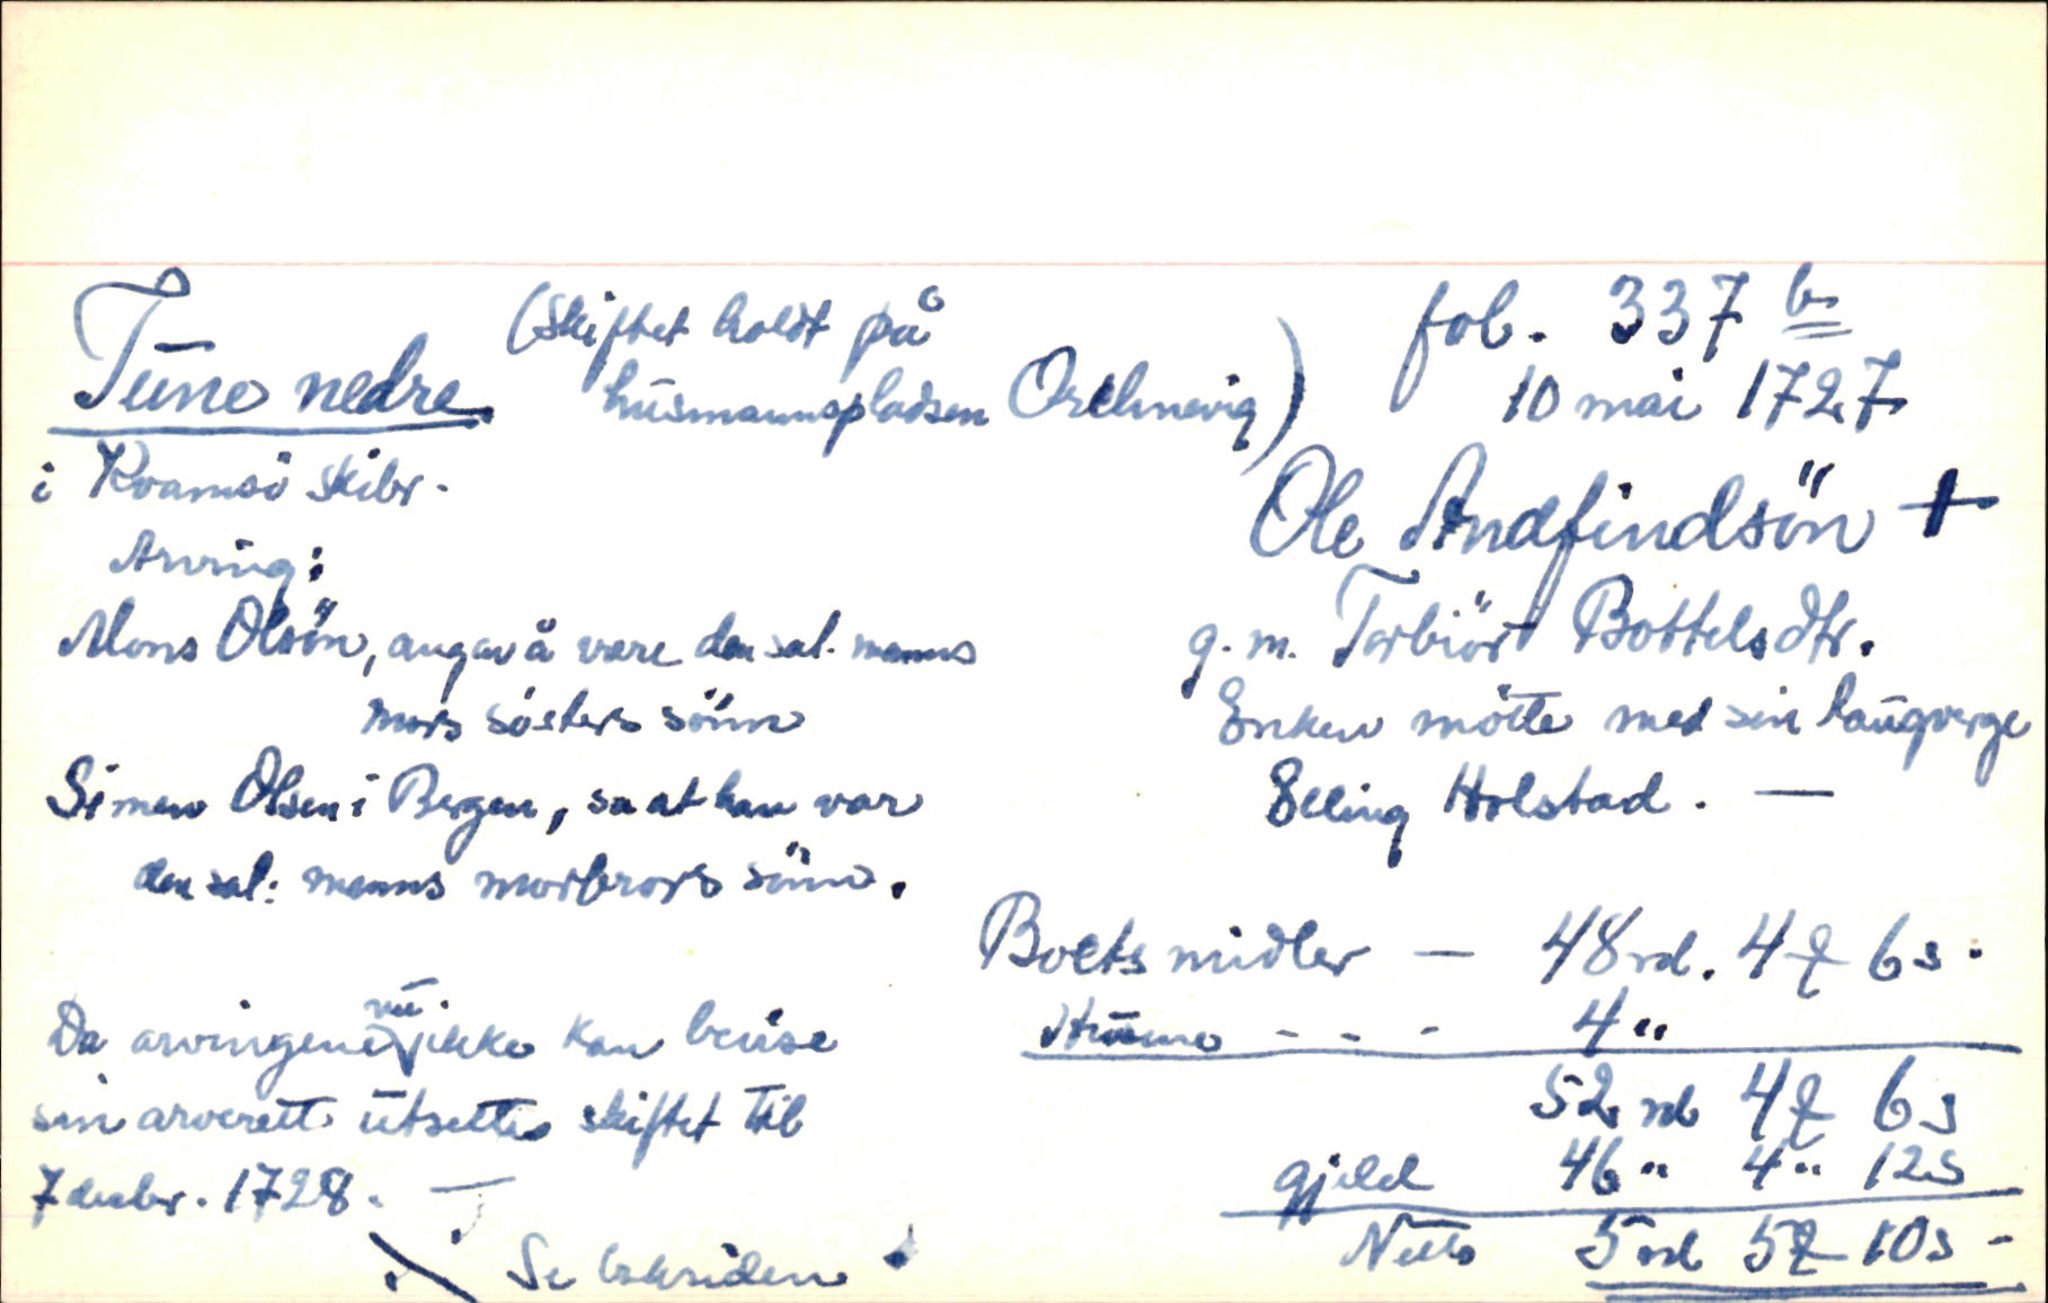 Tune nedre (Skiftet holdt på
husmannspladsen Ortnevig)
fol. 337 b
10 mai 1727
i Kvamsö skibr.
Ole Andfindsön +
Arving:
Mons Olsön, angav å være den sal. manns
mors sösters sönn
g. m. Torbiör Bottelsdtr.
Enken mötte med sin laugverge
Simen Olsen i Bergen, sa at han var
den sal: manns morbrors sönn.
Elling Holstad. —
Boets midler — 48 rd. 4 ₰ 6 s.
Husene - - - 4 "
52 rd 4 ₰ 6 s
gjeld 46 " 4 " 12 s
Netto 5 rd 5 ₰ 10 s -
Da arvingene nu ikke kan beuise
sin arverett utsettes skiftet til
7 decbr. 1728. —
Se baksiden